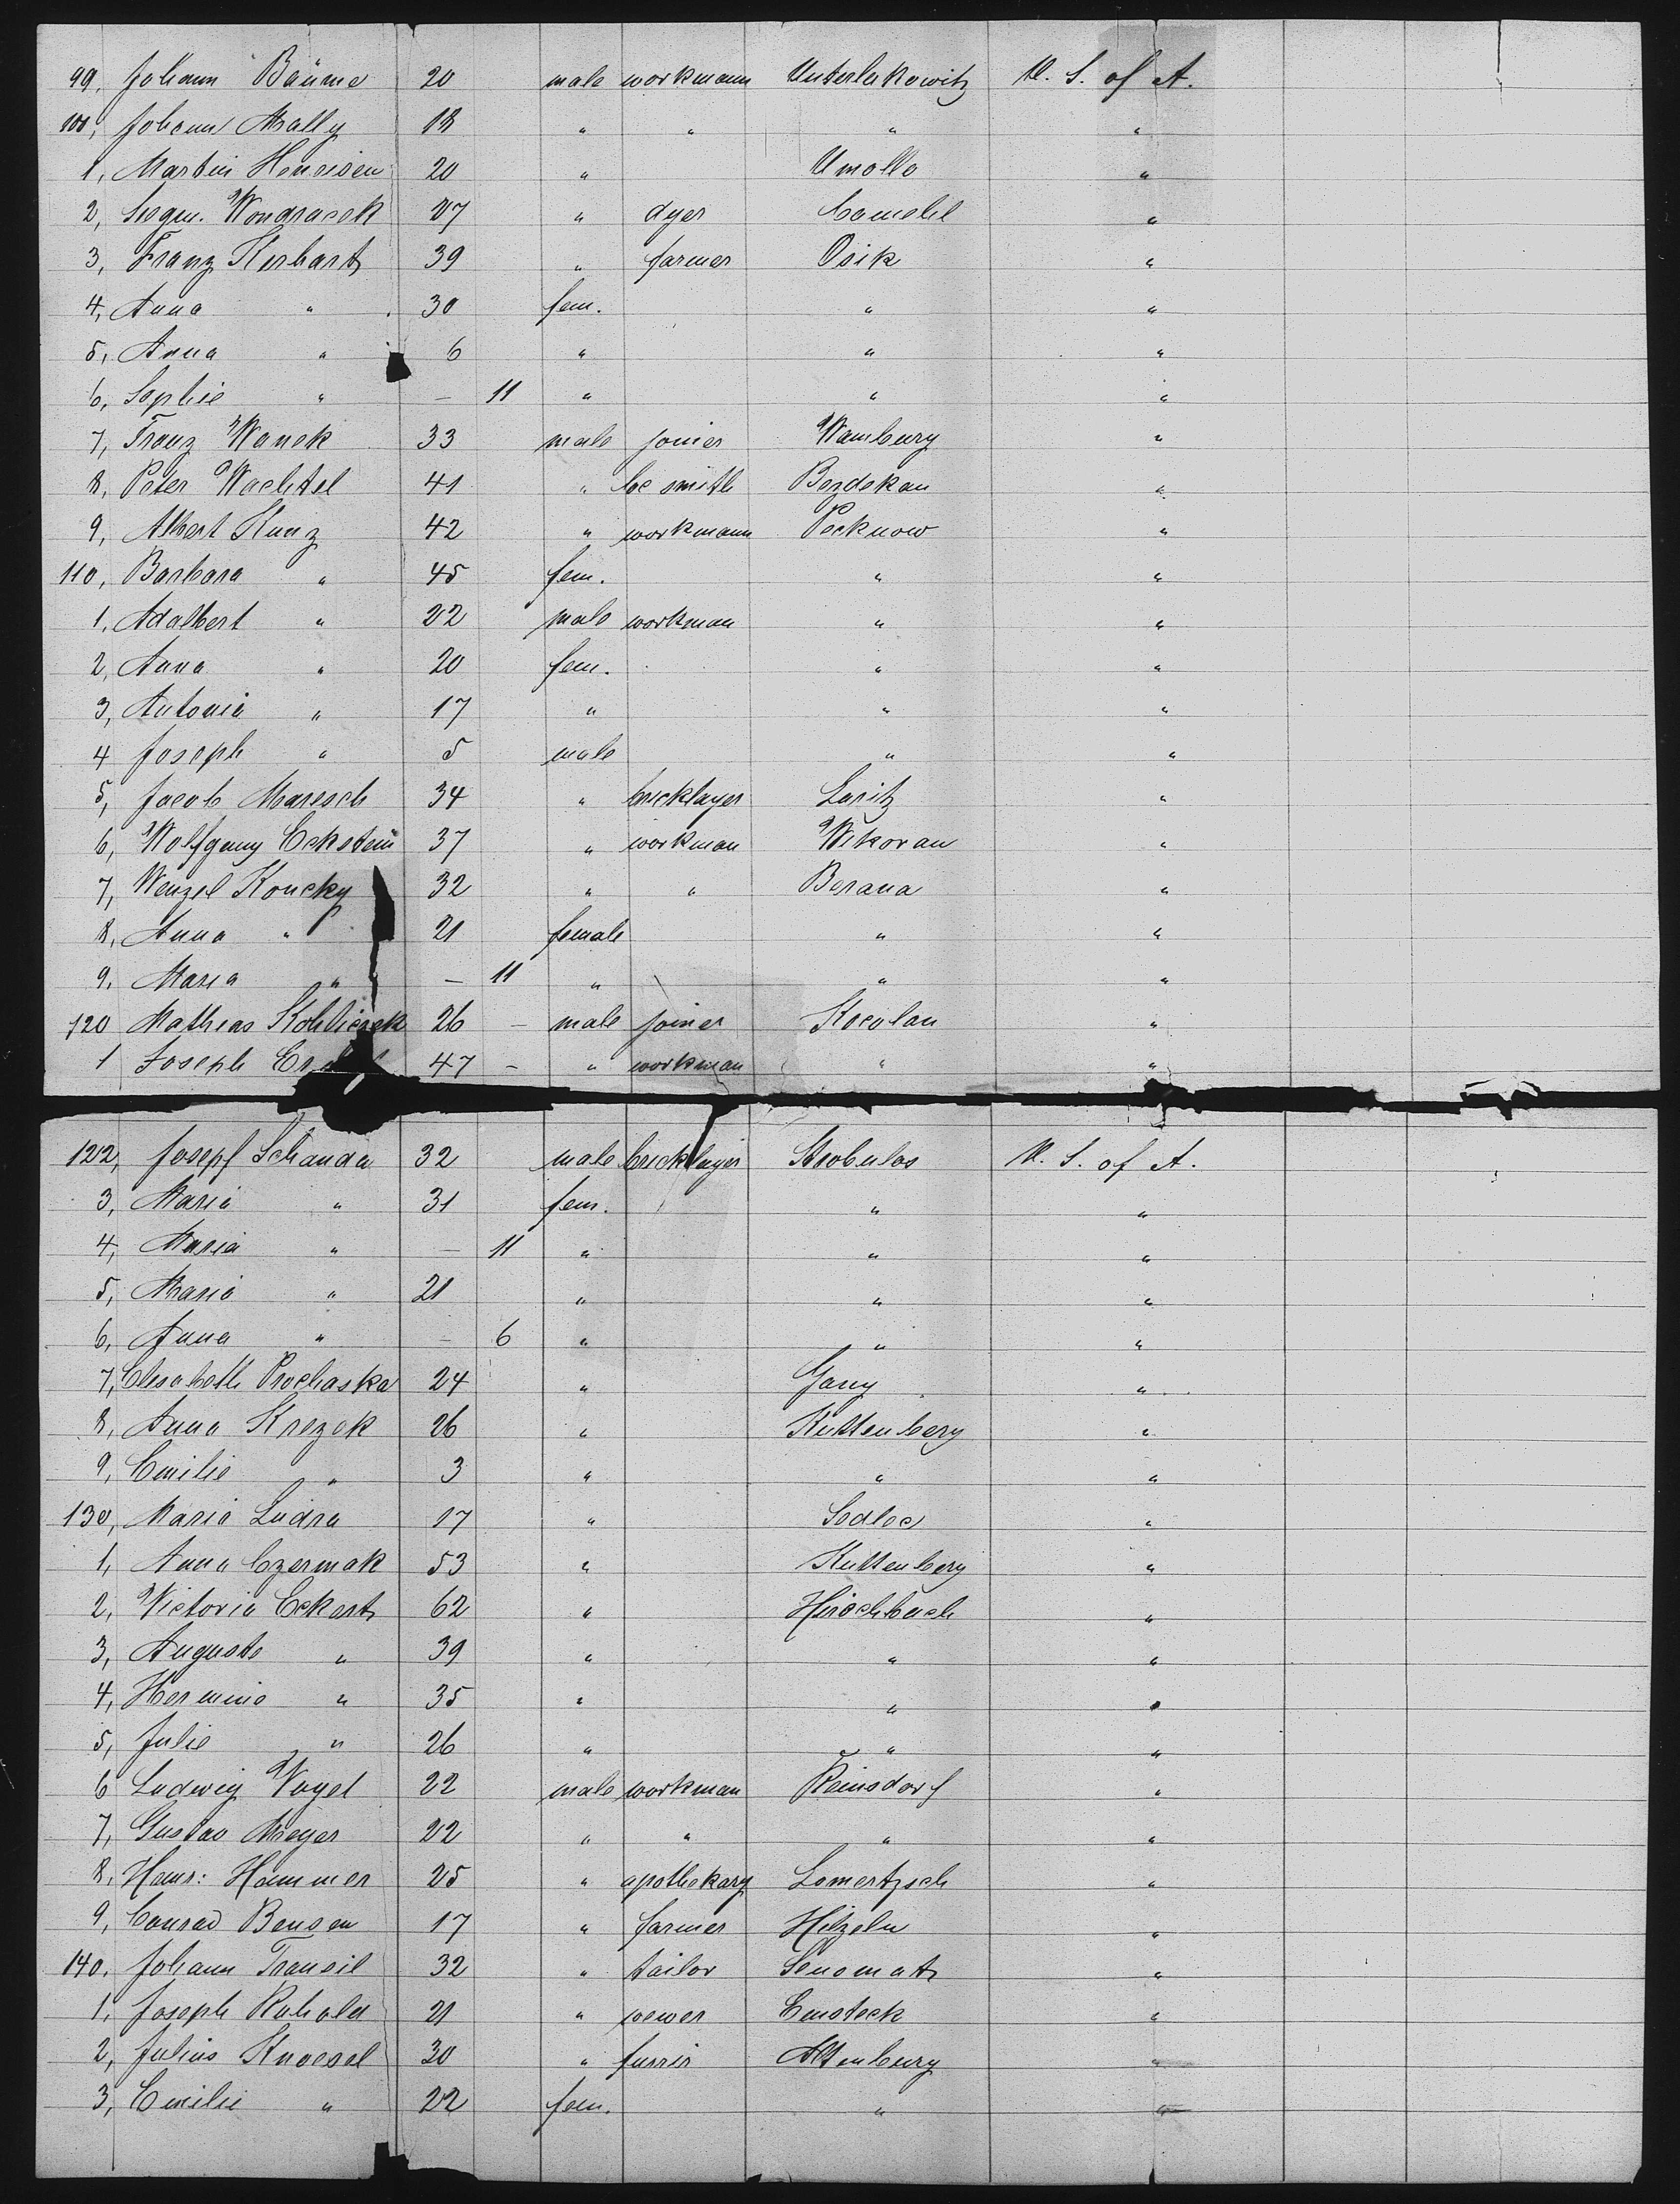 99, Johann Bäume 20 male workmann Unterlukowitz U. S. of A.
100, Johann Mally 18 " " " "
1, Martin Heneisen 20 " Umollo "
2, Siegm. Wondracek 27 " dyer "
3, Franz Kerhart 39 " farmer Osik "
4, Anna " 30 fem. " "
5, Anna " 6 " " "
6, Sophie " — 11 " " "
7, Franz Wanek 33 male joiner Wamburg "
8, Peter Wachtel 41 " loc smith Bezdekau "
9, Albert Kunz 42 " workmann Pecknow "
110, Barbara " 45 fem. " "
1, Adalbert " 22 male workman " "
2, Anna " 20 fem. " "
3, Antonia " 17 " " "
4 Joseph " 5 male " "
5, Jacob Maresch 34 " bricklayer Laritz "
6, Wolfgang Eckstein 37 " workman Wikoran "
7, Wenzel Koucky 32 " " Berana "
8, Anna " 21 female " "
9, Maria " — 11 " " "
120 Mathias Kohlicek 26 – male joiner Kocolau "
1 Joseph 47 – " workman " "
122, Josepf Schanda 32 male bricklayer Strobulos U. S. of A.
3, Maria " 31 fem. " "
4, Maria " — 11 " " "
5, Maria " 21 " " "
6, Anna " — 6 " " "
7, Elisabeth Prochaska 24 " Gang "
8, Anna Krezek 26 " Kuttenberg "
9, Emilie " 3 " " "
130, Maria Ludra 17 " Sedlec "
1, Anna Czermak 53 " Kuttenberg "
2, Victoria Eckart 62 " Hirschbach "
3, Auguste " 39 " " "
4, Hermine " 35 " " "
5, Julie " 26 " " "
6 Ludwig Vogel 22 male workman Reinsdorf "
7, Gustav Meyer 22 " " " "
8, Hammer 25 " apothekary Lomertzsch "
9, Conrad Bensen 17 " farmer Hitzeln "
140. Johann Transil 32 " tailor Senomat "
1, Joseph Rohola 21 " wewer Emsteck "
2, Julius Knoesel 30 " furrir Altenburg "
3, Emilie " 22 fem. " "